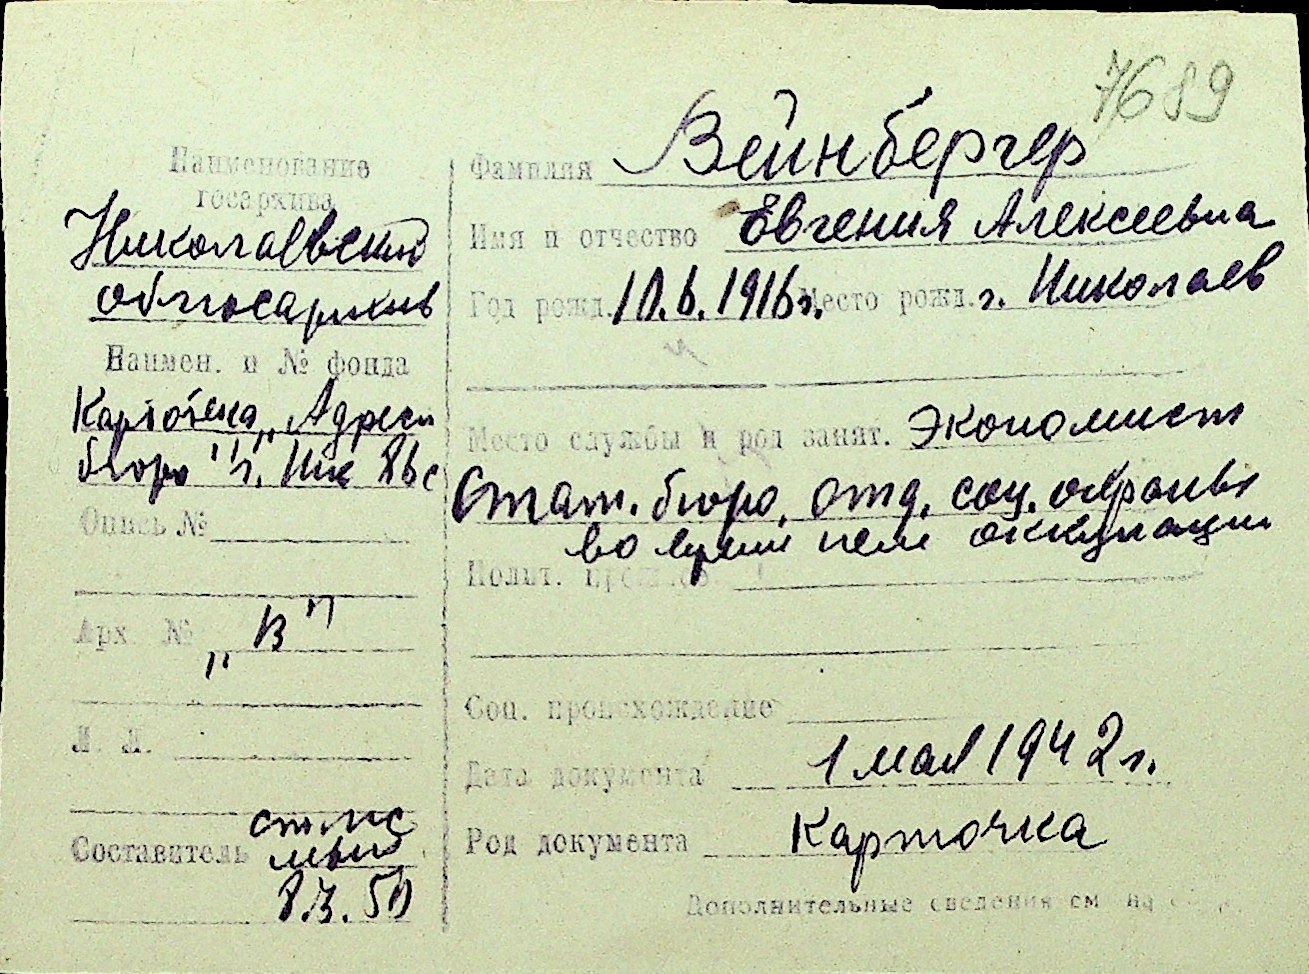 7689
Наименование
госархива
Николаевский
облгосархив
Наимен. и № фонда
Картотека „Адресн
бюро" г. Ник
Опись №
Арх. №
„В"
Л. Л.
Составитель
8.X.50
Фамилия Вейнбергер
Имя и отчество Евгения Алексеевна
Год рожд. 10.6.1916г. Место рожд. г. Николаев
Место службы и род занят. Экономист
Стат. бюро, отд. соц. охраны
во время нем оккупации
Полит.
Соц. происхождение
Дата документа 1 мая 1942 г.
Род документа Карточка
Дополнительные сведения см на